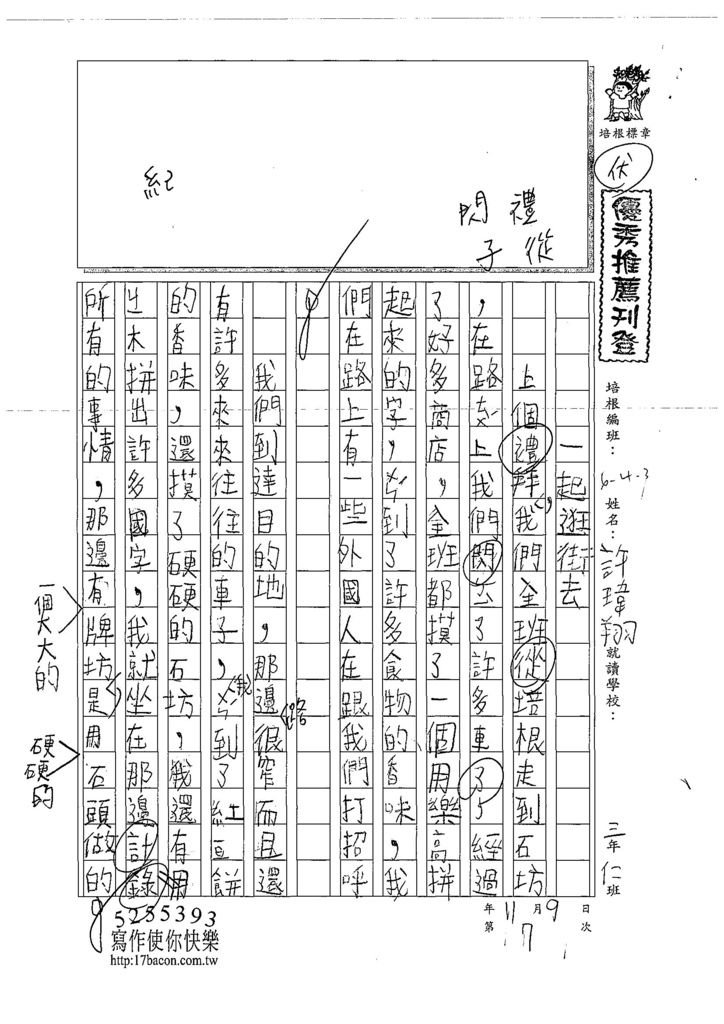 培根標章
伏
優秀推薦刊登
培根編班：
6-4-3
姓名：許瑋翔
就讀學校：
三年仁班
年11月9日
第17次
紀
閃 禮
子 從
一起逛街去
上個禮拜，我們全班從培根走到石坊
，在路上，我們閃了許多車子，經過
了好多商店，全班都摸了一個用樂高拼
起來的字，聞到了許多食物的香味，我
們在路上有一些外國人在跟我們打招呼
我們到達目的地，那邊路很窄而且還
有許多來來往往的車子，我聞到了紅豆餅
的香味，還摸了硬硬的石坊，我還有用
木拼出許多國字，我就坐在那邊計錄
所有的事情，那邊有牌坊是用石頭做的
一個大大的
硬硬的
5255393
寫作使你快樂
http:17bacon.com.tw